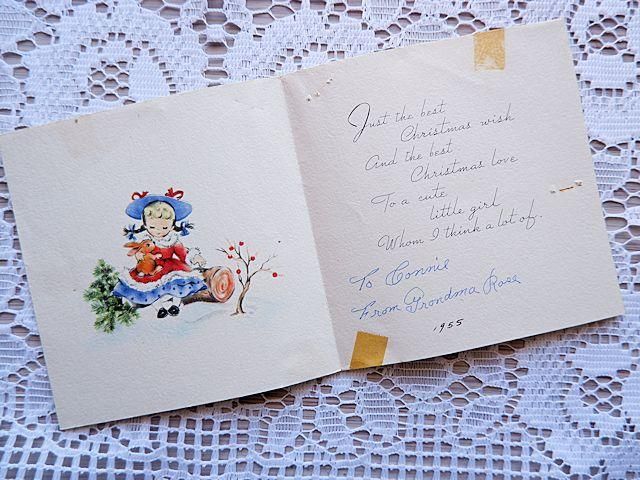 Just the best
Christmas wish
And the best
Christmas love
To a cute
little girl
Whom I think a lot of.
To Connie
From Grandma Rose
1955